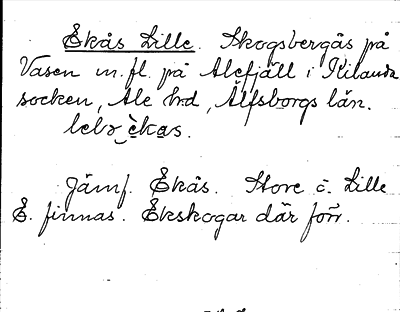 Ekås Lille. Skogsbergås på
Vasen m. fl. på Alefjäll i Kilanda
socken, Ale hrd, Älfsborgs län.
Jämf. Ekås. Store o. Lille
E. finnas. Ekskogar där förr.